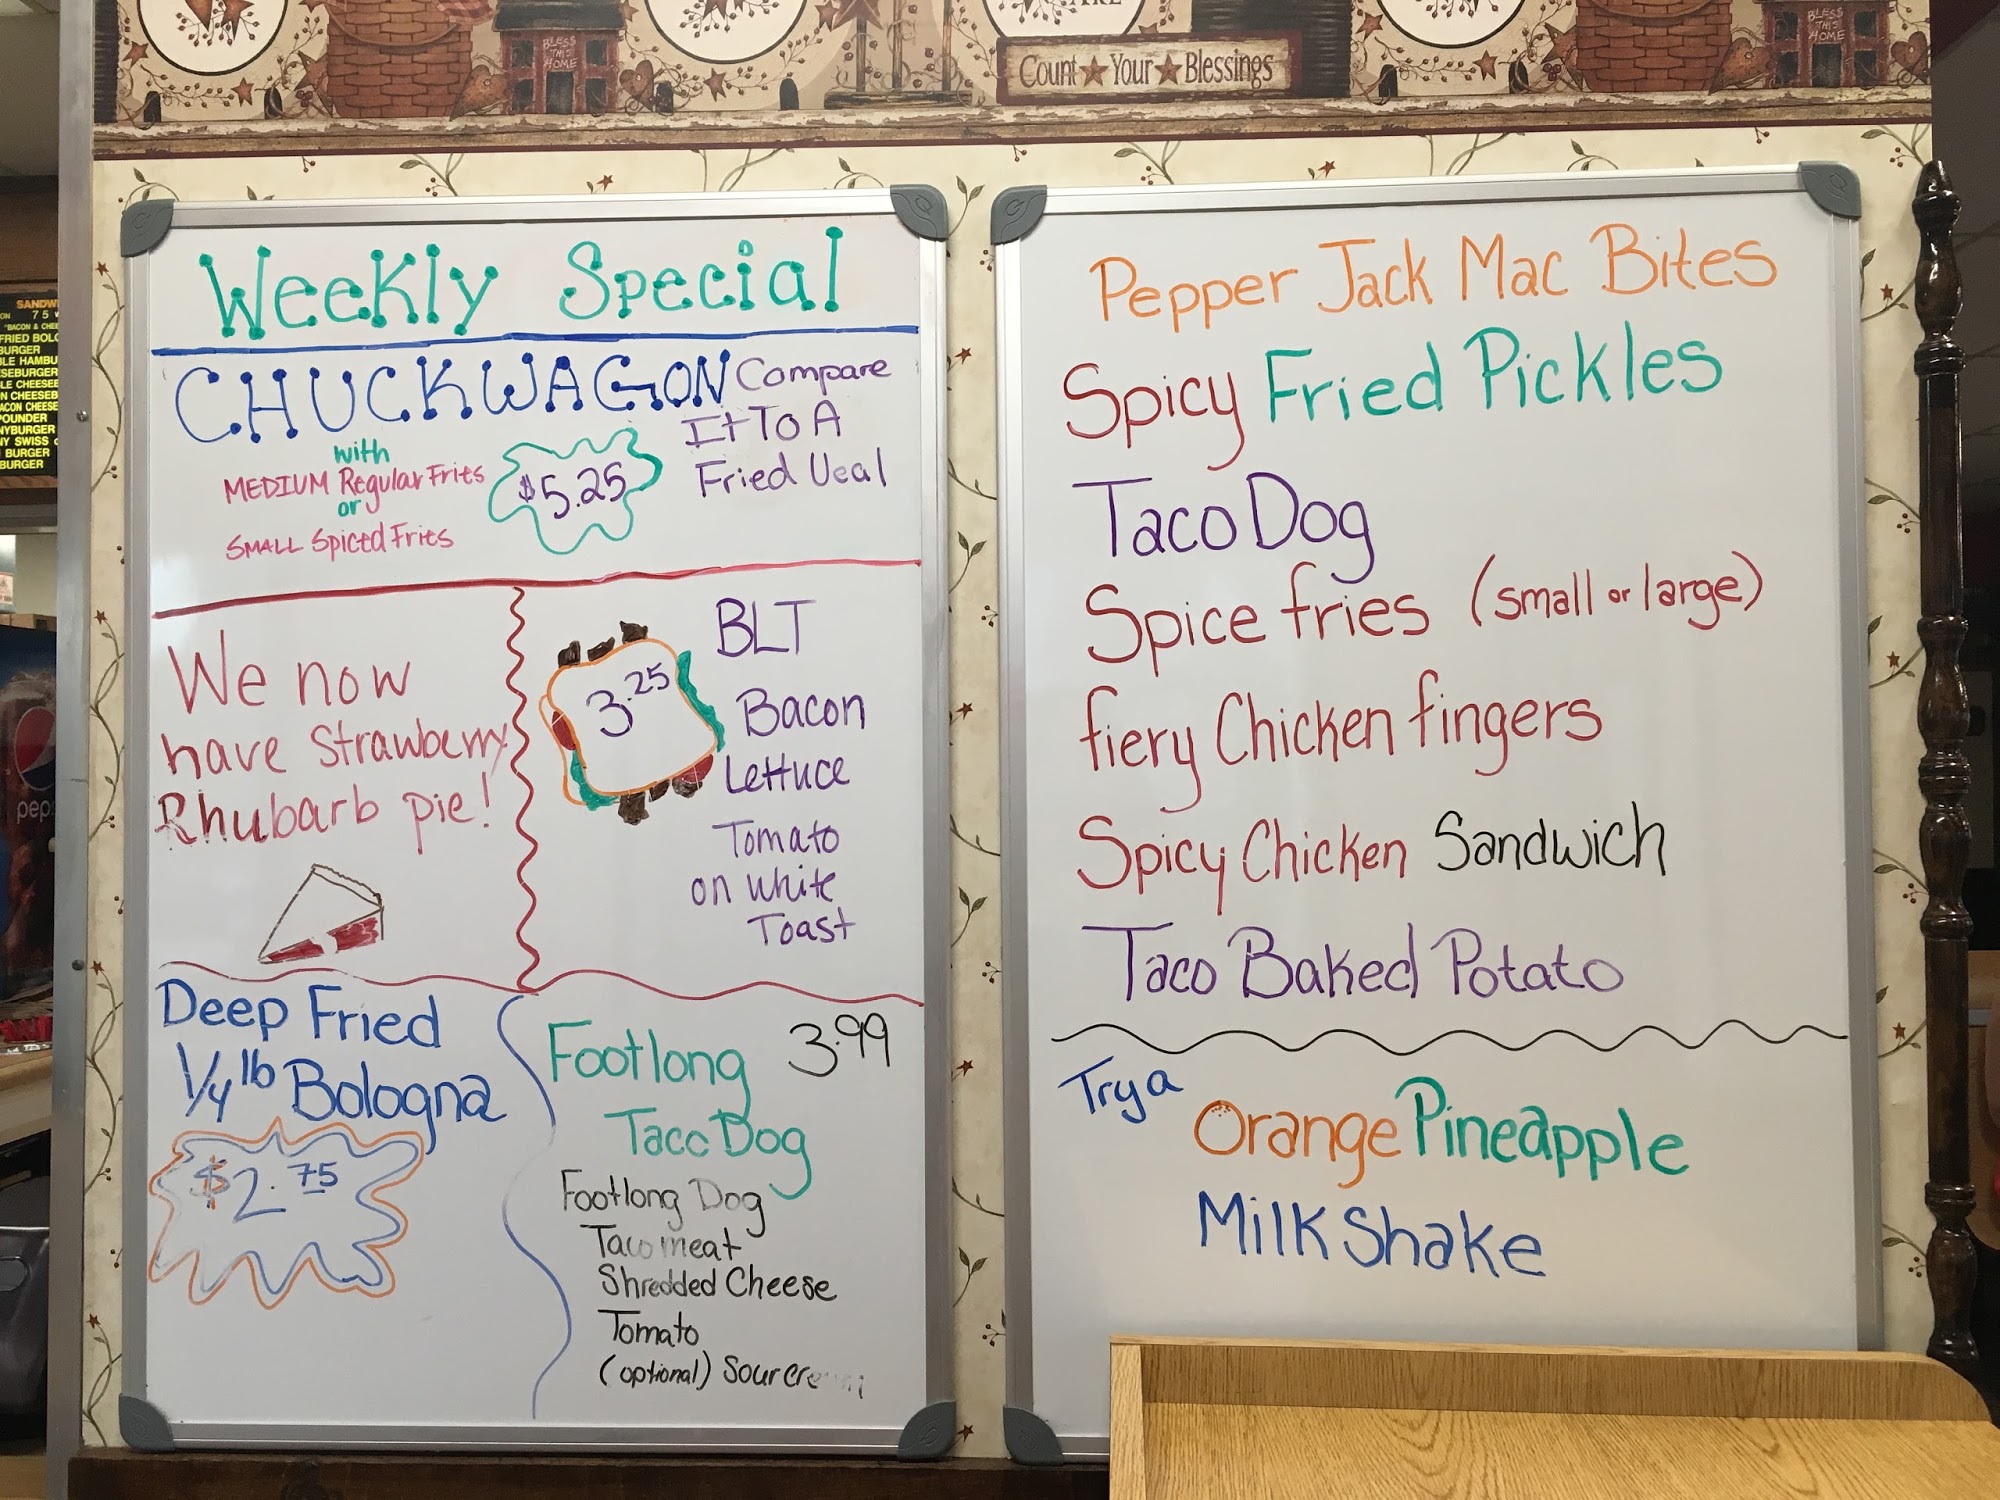 ARE
Count Your Blessings
BLESS
THIS
HOME
BLESS
THIS
HOME
Weekly Special
CHUCKWAGON
Compare
It To A
Fried Veal
with
MEDIUM Regular Fries
or
SMALL Spiced Fries
$5.25
We now
have Strawberry
Rhubarb pie!
3.25
BLT
Bacon
Lettuce
Tomato
on white
Toast
Deep Fried
1/4 lb Bologna
$2.75
Footlong 3.99
Taco Dog
Footlong Dog
Taco meat
Shredded Cheese
Tomato
(optional) Sour Cream
Pepper Jack Mac Bites
Spicy Fried Pickles
Taco Dog
Spice fries (small or large)
fiery Chicken fingers
Spicy Chicken Sandwich
Taco Baked Potato
Try a
Orange Pineapple
Milk Shake
SANDW
75
BACON & CHEE
FRIED BOLO
BURGER
BLE HAMBU
ESEBURGER
BLE CHEESEB
N CHEESEB
ACON CHEESE
POUNDER
NYBURGER
NY SWISS
BURGER
BURGER
peps